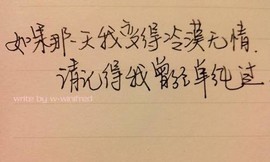 如果那一天我变得冷漠无情.
请记得我曾经单纯过
write by w-winifred